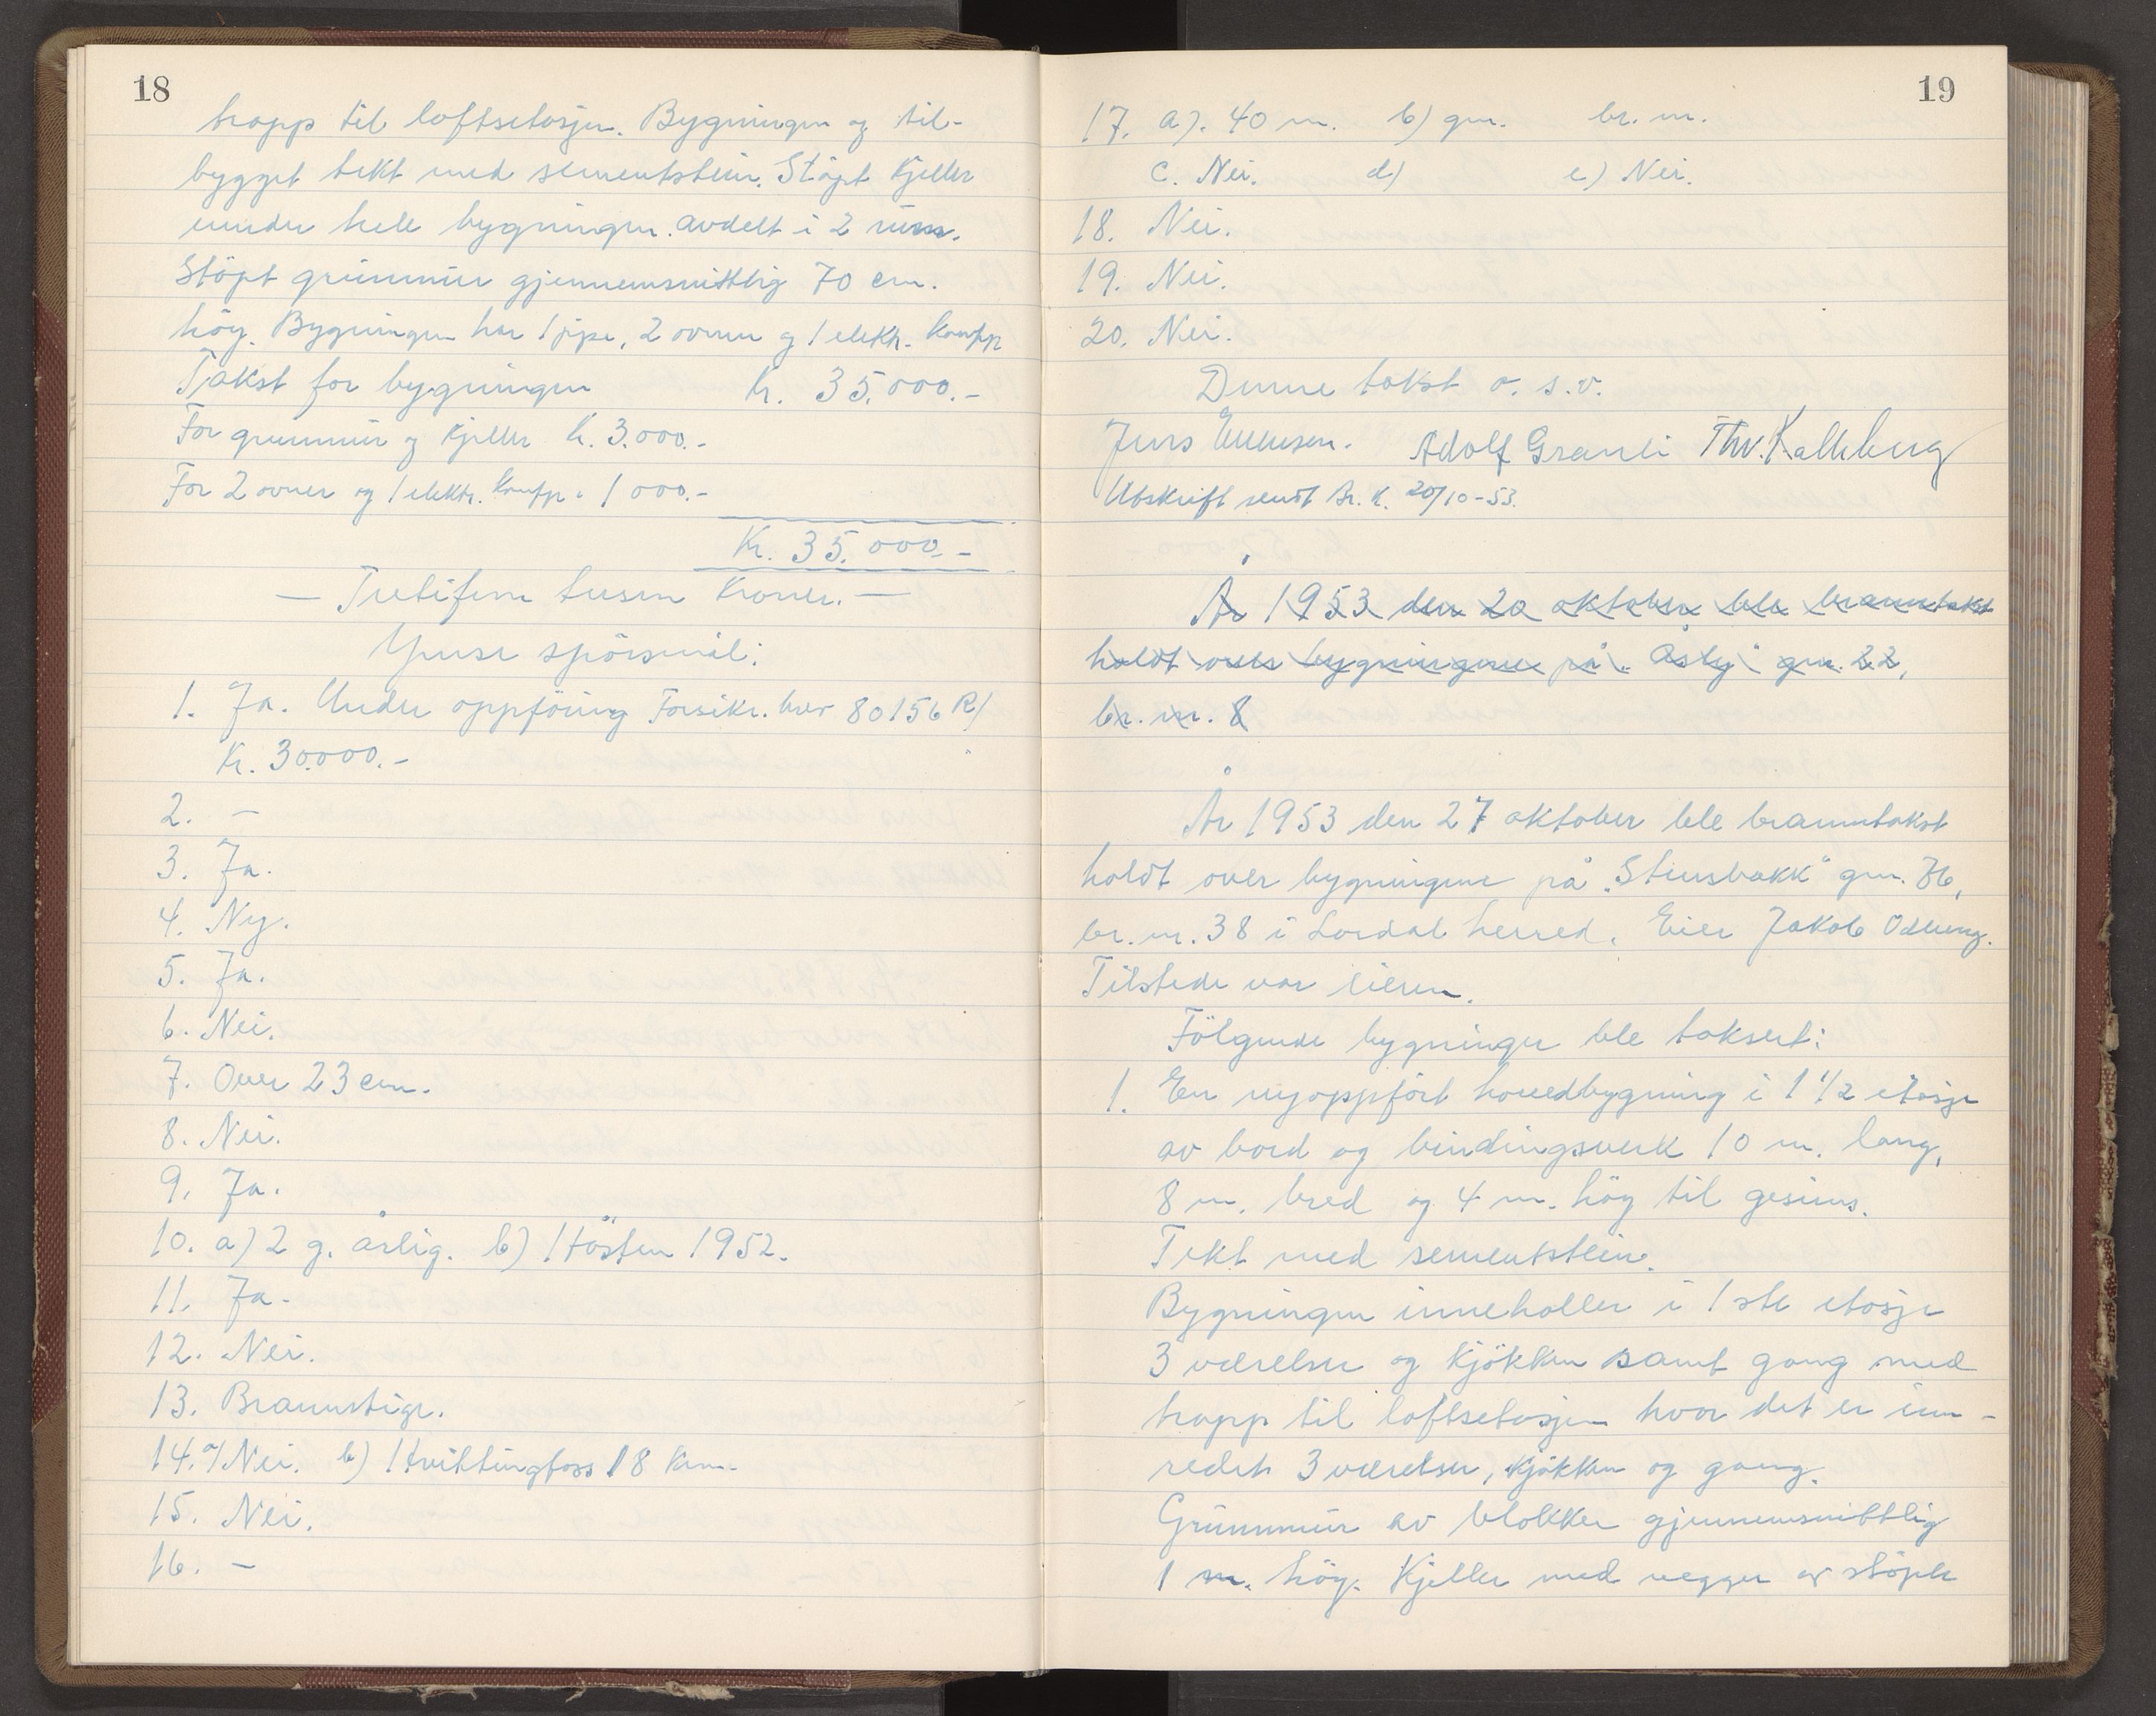 18
trapp til loftsetasjen. Bygningen og til-
bygget tekt med sementstein. Støpt Kjeller
under hele bygningen avdelt i 2 rum.
Støpt grunnmur gjennemsnittlig 70 cm.
høy. Bygningen har 1 pipe, 2 ovner og 1 elektr. komfyr
Takst for bygningen Kr. 35.000.-
For grunnmur og Kjeller Kr. 3.000.-
For 2 ovner og 1 elektr. komfyr " 1000.-
Kr. 35.000.-
— Trettifem tusen Kroner. —
Ymse spörsmål:
1. Ja. Under oppföring Forsikr. brev 80156 R/
Kr. 30.000.-
2. -
3. Ja.
4. Ny.
5. Ja.
6. Nei.
7. Over 23 cm.
8. Nei.
9. Ja.
10. a) 2 g. årlig. b) Hösten 1952.
11. Ja.
12. Nei.
13. Brannstige.
14. a/ Nei. b) Hvittingfoss 18 km.
15. Nei.
16. -
19
17. a). 40 m. b) gm. br. m.
c. Nei. d) e) Nei.
18. Nei.
19. Nei.
20. Nei.
Denne takst o. s. v.
Jens Evensen. Adolf Granli Thv. Kallberg
Utskrift sendt Br. K. 20/10-53.
År 1953 den 20 oktober ble branntakst
holdt over bygningene på "Åsly" gm. 22,
br. nr. 8
År 1953 den 27 oktober ble branntakst
holdt over bygningene på "Stensbakk" gm. 76,
br. nr. 38 i Lardal herred. Eier Jakob Odberg.
Tilstede var eieren.
Fölgende bygninger ble taksert:
1. En nyoppfört hovedbygning i 1 1/2 etasje
av bord og bindingsverk 10 m. lang,
8 m. bred og 4 m. höy til gesims.
Tekt med sementstein.
Bygningen inneholler i 1ste etasje
3 værelser og kjökken samt gang med
trapp til loftsetasjen hvor det er inn-
redet 3 værelser, kjökken og gang.
Grunnmur av blokker gjennemsnittlig
1 m. höy. Kjeller med vegger av stöpte